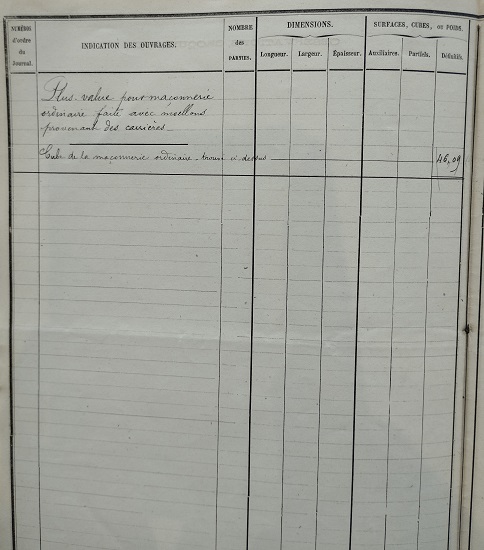 NUMÉROS
d'ordre
du
Journal.
INDICATION DES OUVRAGES.
NOMBRE
des
PARTIES.
DIMENSIONS.
Longueur. Largeur. Épaisseur.
SURFACES, CUBES, ou POIDS.
Auxiliaires. Partiels. Définitifs.
Plus-value pour maçonnerie
ordinaire faite avec moellons
provenant des carrières
Cube de la maçonnerie ordinaire trouvé ci-dessus 46,09